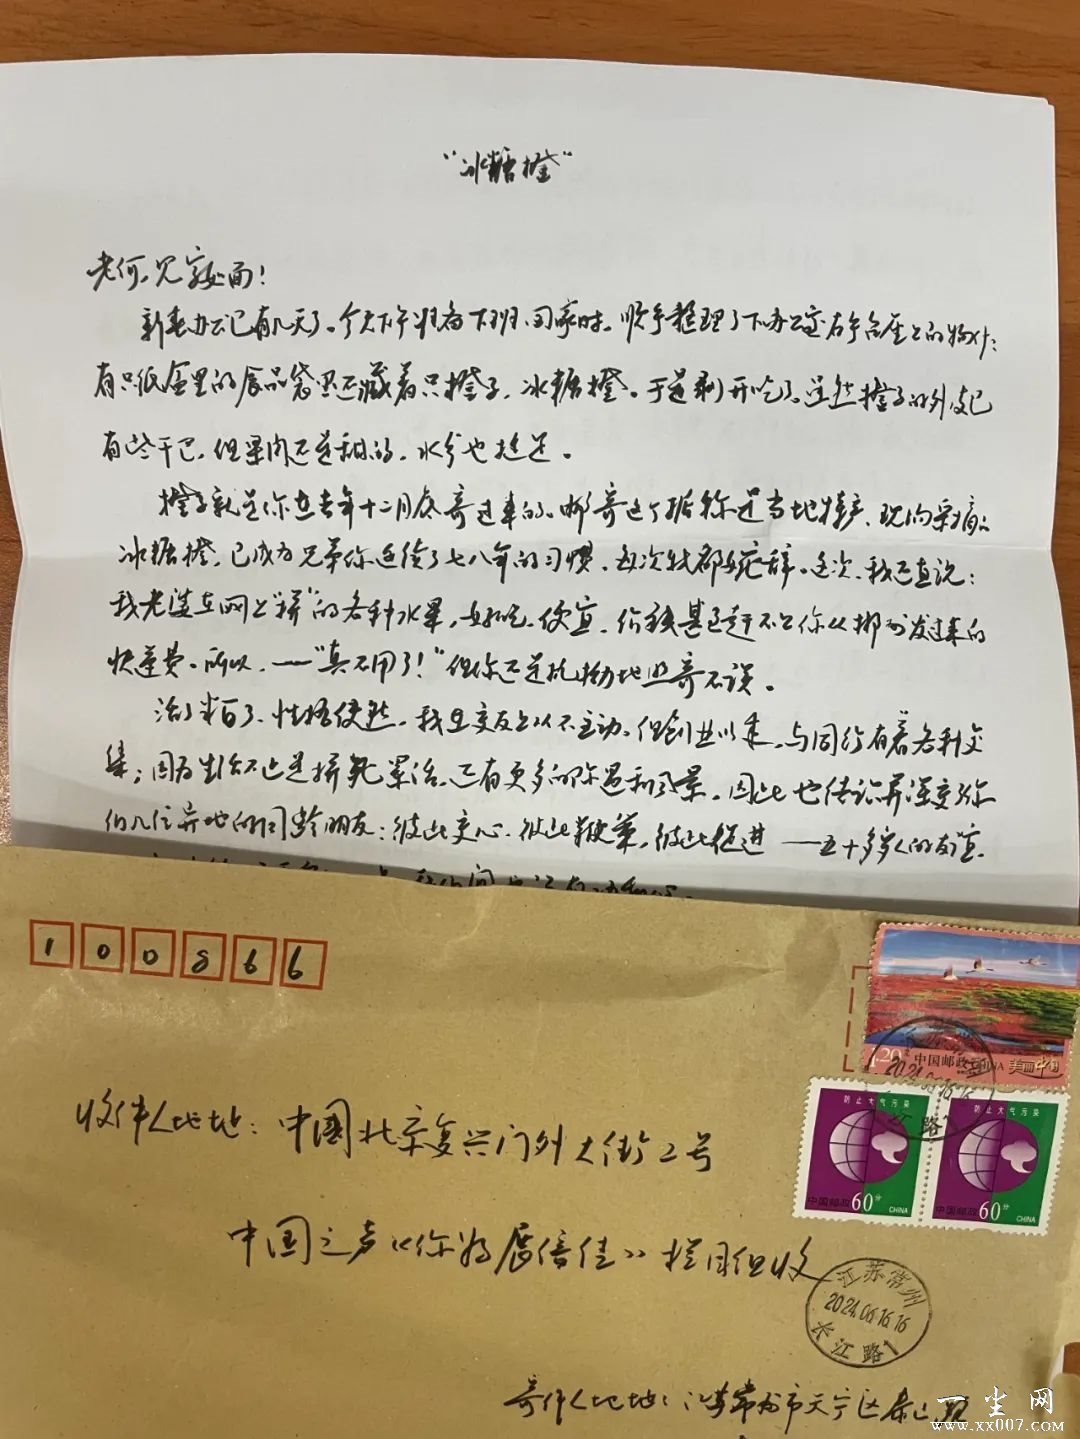 “冰糖橙”
老何，见字如面！
新春办公已有几天了。今天下午准备下班回家时，顺手整理了下办公室右手台座上的物什：
有只纸盒里的食品袋里还藏着只橙子，冰糖橙。于是剥开吃了。虽然橙子的外皮已
有些干巴，但果肉还是甜的，水分也挺足。
橙子就是你在去年十二月底寄过来的。邮寄这个据称是当地特产、现摘的
冰糖橙，已成为兄弟你连续了七八年的习惯，每次我都婉辞。这次，我还直说：
我老婆在网上“拼”的各种水果，好吃、便宜，价钱甚至赶不上你从郴州发过来的
快递费。所以，——“真不用了！”但你还是执拗地照寄不误。
活了半百了，性格使然，我在交友上从不主动。但创业以来，与同行有着各种交
集；因为生活不止是拼死累活，还有更多的际遇和风景，因此也结识并深交了你
们几位异地的同龄朋友：彼此交心、彼此鞭策，彼此促进——五十多岁人的友谊，
100866
1.20 中国邮政 CHINA 美丽中国
2024.06.16.16
长江路
防止大气污染 防止大气污染
中国邮政 60分 CHINA 中国邮政 60分 CHINA
收件人地址：中国北京复兴门外大街2号
中国之声《你好,陌倍佳》栏目组收
江苏常州
2024.06.16.16
长江路
寄件人地址：江苏常州市天宁区泰山
一尘网
www.xx007.com